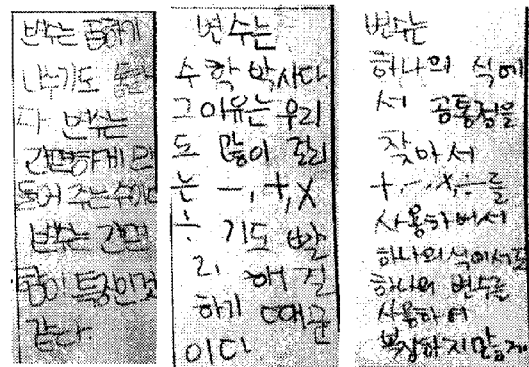 변수는 곱하기
나누기도 한
다 변수는
간편하게 만
들어 주는 수이다
변수는 간편
함이 특징인것
같다.
변수는
수학 박사다
그 이유는 우리
도 많이 걸리
는 -, +, X
÷ 기도 빨
리 해결
하기 때문
이다
변수는
하나의 식에
서 공통점을
찾아서
+, -, X, ÷를
사용하여서
하나의 식에서도
하나의 변수를
사용하여
복잡하지 않게